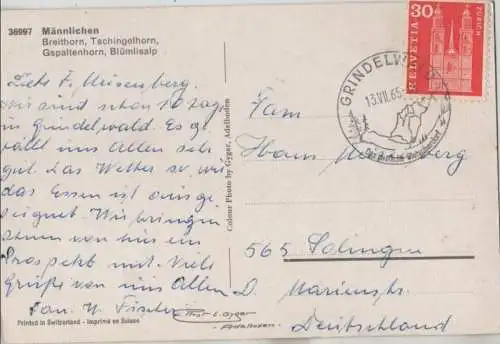 36997 Männlichen
Breithorn, Tschingelhorn,
Gspaltenhorn, Blümlisalp
Liebe F. Meisenberg.
wir sind schon 10 Tag
in Grindelwald. Es ge
fällt uns Allen sehr
gut. das Wetter so, wie
das Essen ist ausge
zeignet. Wir bringen
ihnen von hier ein
Prospekt mit. Viele
Grüße von uns Allen
Fam. W. Fischer
Printed in Switzerland - Imprimé en Suisse
Colour Photo by Gyger, Adelboden
Phot. E. Gyger
Adelboden
30
HELVETIA
ZÜRICH
GRINDELWALD
13.VII.65
Fam
Hans
565 Solingen
D. Marienstr.
Deutschland